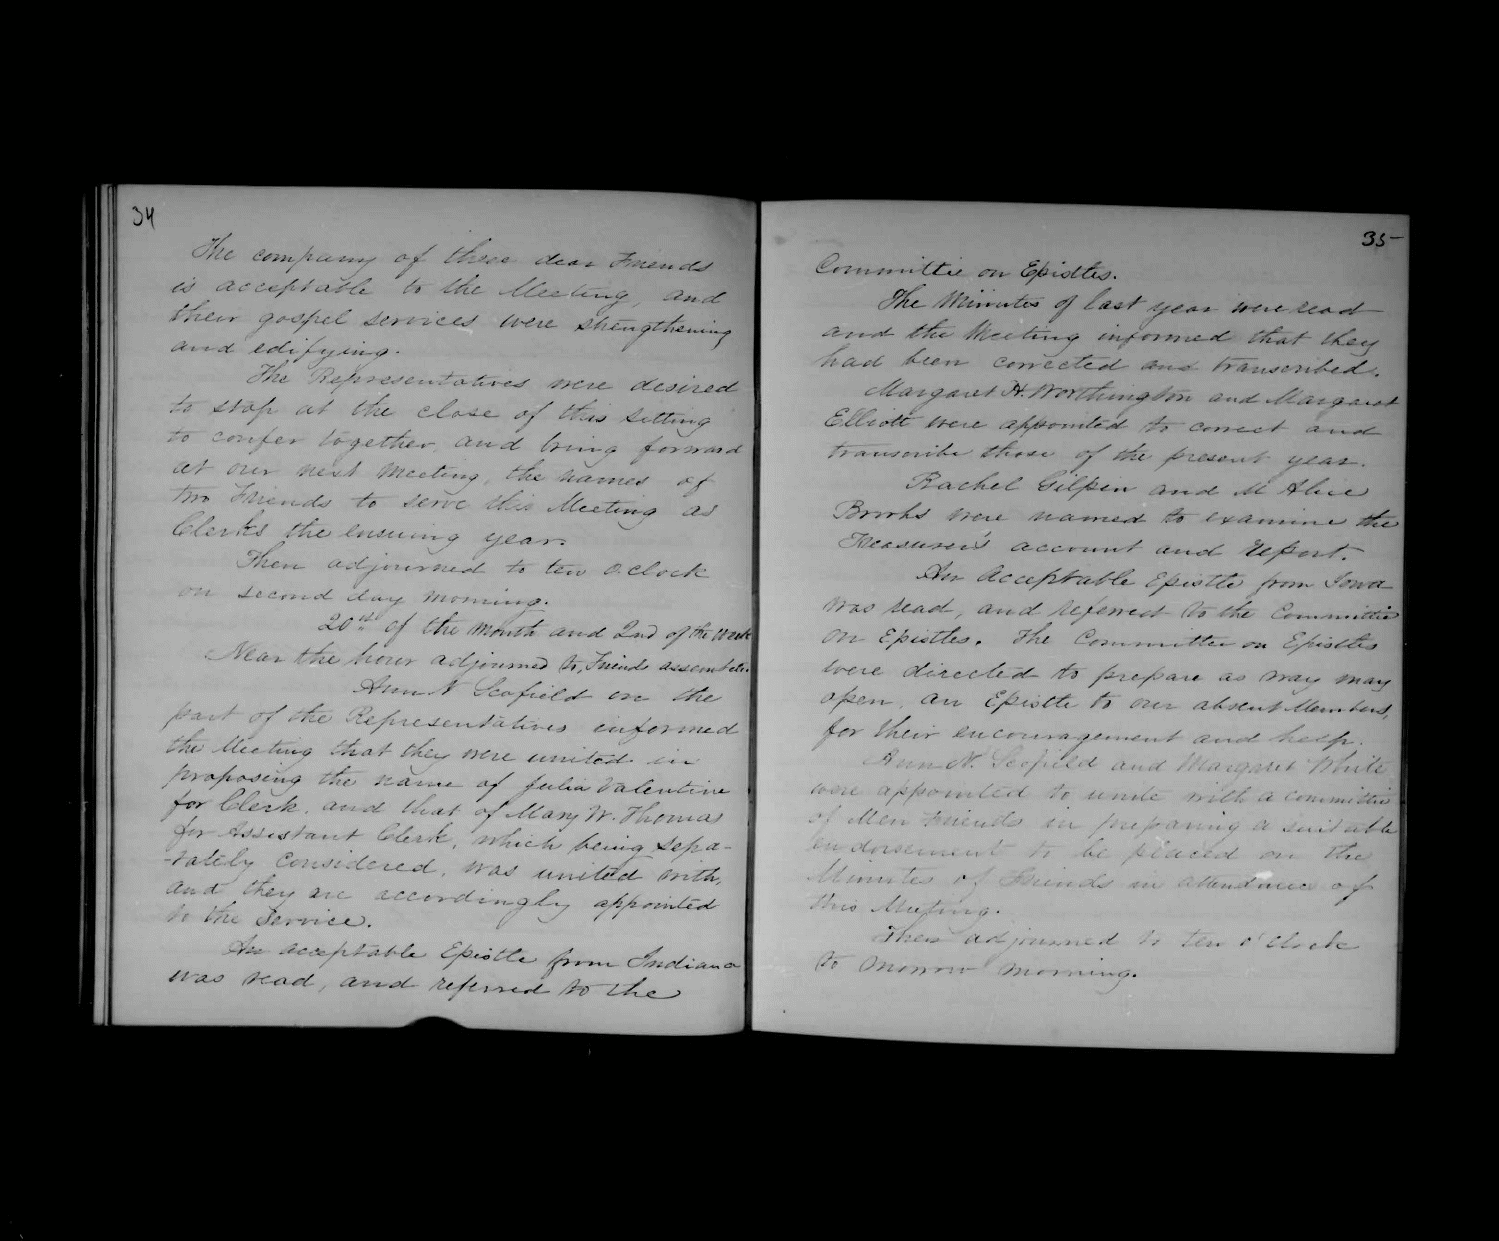 34
The company of these dear Friends
is acceptable to the Meeting, and
their gospel services were strengthening
and edifying.
The Representatives were desired
to stop at the close of this sitting
to confer together, and bring forward
at our next meeting, the names of
two Friends to serve this Meeting as
Clerks the ensuing year.
Then adjourned to ten oclock
on second day morning.
20th of the Month and 2nd of the Week
Near the hour adjourned to, Friends assembled.
Ann N Scofield on the
part of the Representatives informed
the Meeting that they were united in
proposing the name of Julia Valentine
for Clerk. and that of Mary W. Thomas
for Assistant Clerk, which being sepa-
-rately considered, was united with,
and they are accordingly appointed
to the Service.
An acceptable Epistle from Indiana
was read, and referred to the
35
Committee on Epistles.
The Minutes of last year were read
and the Meeting informed that they
had been corrected and transcribed.
Margaret H. Worthington and Margaret
Elliott were appointed to correct and
transcribe those of the present year.
Rachel Gilpin and M Alice
Brooks were named to examine the
Treasurer's account and report.
An Acceptable Epistle from Iowa
was read, and referred to the Committee
on Epistles. The Committee on Epistles
were directed to prepare as way may
open, an Epistle to our absent Members,
for their encouragement and help.
Ann N. Scofield and Margaret White
were appointed to unite with a committee
of Men Friends in preparing a suitable
endorsement to be placed on the
Minutes of Friends in attendance of
this Meeting.
Then adjourned to ten o'clock
to morrow morning.